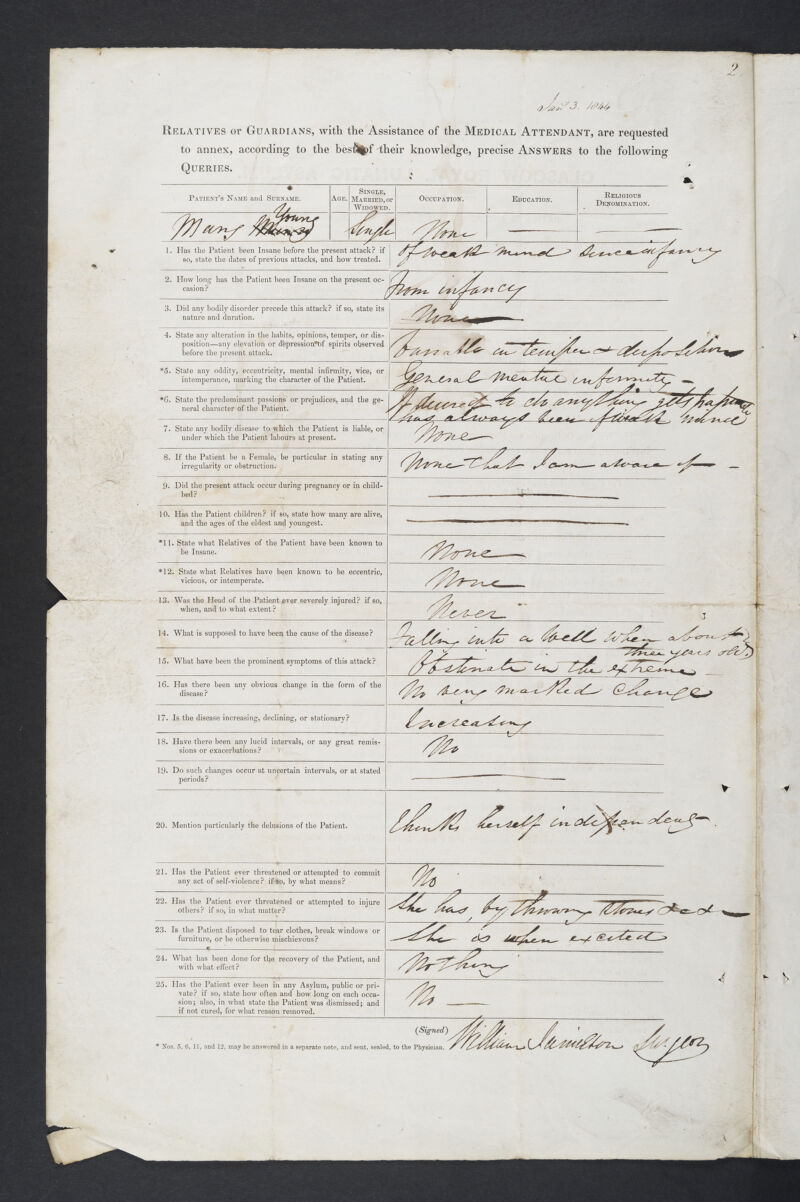 2
Jany 3. 1844
RELATIVES or GUARDIANS, with the Assistance of the MEDICAL ATTENDANT, are requested
to annex, according to the best of their knowledge, precise ANSWERS to the following
QUERIES.
PATIENT'S NAME and SURNAME.
AGE.
SINGLE,
MARRIED, or
WIDOWED.
OCCUPATION.
EDUCATION.
RELIGIOUS
DENOMINATION.
Young
Mary
Single
None
1. Has the Patient been Insane before the present attack? if
so, state the dates of previous attacks, and how treated.
Of weak mind since infancy
2. How long has the Patient been Insane on the present oc-
casion?
From infancy
3. Did any bodily disorder precede this attack? if so, state its
nature and duration.
None
4. State any alteration in the habits, opinions, temper, or dis-
position—any elevation or depression of spirits observed
before the present attack.
Variable in temper & disposition
*5. State any oddity, eccentricity, mental infirmity, vice, or
intemperance, marking the character of the Patient.
General mental infirmity –
*6. State the predominant passions or prejudices, and the ge-
neral character of the Patient.
If desired to do anything gets
has always been of weak mind
7. State any bodily disease to which the Patient is liable, or
under which the Patient labours at present.
None
8. If the Patient be a Female, be particular in stating any
irregularity or obstruction.
None that I am aware of –
9. Did the present attack occur during pregnancy or in child-
bed?
10. Has the Patient children? if so, state how many are alive,
and the ages of the eldest and youngest.
*11. State what Relatives of the Patient have been known to
be Insane.
None
*12. State what Relatives have been known to be eccentric,
vicious, or intemperate.
None
13. Was the Head of the Patient ever severely injured? if so,
when, and to what extent?
Never
14. What is supposed to have been the cause of the disease?
Falling into a well when about
three years old.
15. What have been the prominent symptoms of this attack?
Obstinate in the extreme
16. Has there been any obvious change in the form of the
disease?
No very marked change
17. Is the disease increasing, declining, or stationary?
Increasing
18. Have there been any lucid intervals, or any great remis-
sions or exacerbations?
No
19. Do such changes occur at uncertain intervals, or at stated
periods?
20. Mention particularly the delusions of the Patient.
Thinks herself independent.
21. Has the Patient ever threatened or attempted to commit
any act of self-violence? if so, by what means?
No
22. Has the Patient ever threatened or attempted to injure
others? if so, in what matter?
She has, by throwing stones &c &c
23. Is the Patient disposed to tear clothes, break windows or
furniture, or be otherwise mischievous?
She is when excited
24. What has been done for the recovery of the Patient, and
with what effect?
Nothing
25. Has the Patient ever been in any Asylum, public or pri-
vate? if so, state how often and how long on each occa-
sion; also, in what state the Patient was dismissed; and
if not cured, for what reason removed.
No —
(Signed)
William Jamieson Surgeon
* Nos. 5, 6, 11, and 12, may be answered in a separate note, and sent, sealed, to the Physician.